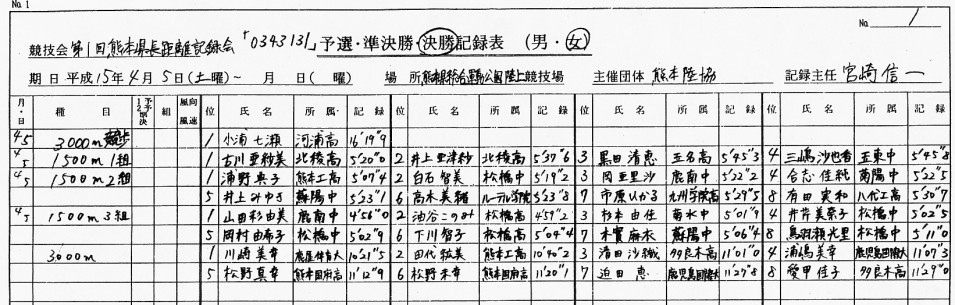 No.1
No. 1
競技会 第1回熊本県長距離記録会 「034313」 予選・準決勝・決勝記録表 (男・女)
期日 平成15年4月5日(土曜)～ 月 日( 曜) 場所 熊本県総合運動公園陸上競技場 主催団体 熊本陸協 記録主任 宮崎信一
月・日 種目 予準決 組 風向風速 位 氏名 所属 記録 位 氏名 所属 記録 位 氏名 所属 記録 位 氏名 所属 記録
4/5 3000m競歩 1 小浦七瀬 河浦高 16'19"9
4/5 1500m 1組 1 古川亜紗美 北稜高 5'20"0 2 井上亜津紗 北稜高 5'37"6 3 黒田清恵 玉名高 5'45"3 4 三嶋沙也香 玉東中 5'45"8
4/5 1500m 2組 1 浦野典子 熊本工高 5'07"4 2 白石智美 松橋中 5'19"2 3 岡亜里沙 鹿南中 5'22"2 4 合志佳純 菊陽中 5'22"5
5 井上みゆき 蘇陽中 5'23"1 6 高木美穂 ルーテル学院 5'23"8 7 市原ひかる 九州学院高 5'29"5 8 有田実和 八代工高 5'30"7
4/5 1500m 3組 1 山田彩由美 鹿南中 4'56"0 2 油谷このみ 松橋高 4'59"2 3 杉本由佳 菊水中 5'01"9 4 井芹美奈子 松橋中 5'02"5
5 岡村由希子 松橋中 5'02"9 6 下川智子 松橋高 5'04"4 7 木實麻衣 蘇陽中 5'06"4 8 鳥羽瀬光里 松橋中 5'11"0
3000m 1 川崎美幸 鹿屋体育大 10'21"5 2 田代絵美 熊本工高 10'40"2 3 清田沙織 多良木高 11'01"0 4 浦嶋美幸 鹿児島国際大 11'07"3
5 松野真幸 熊本国府高 11'12"9 6 松野未幸 熊本国府高 11'20"1 7 迫田恵 鹿児島国際大 11'27"8 8 愛甲佳子 多良木高 11'29"0